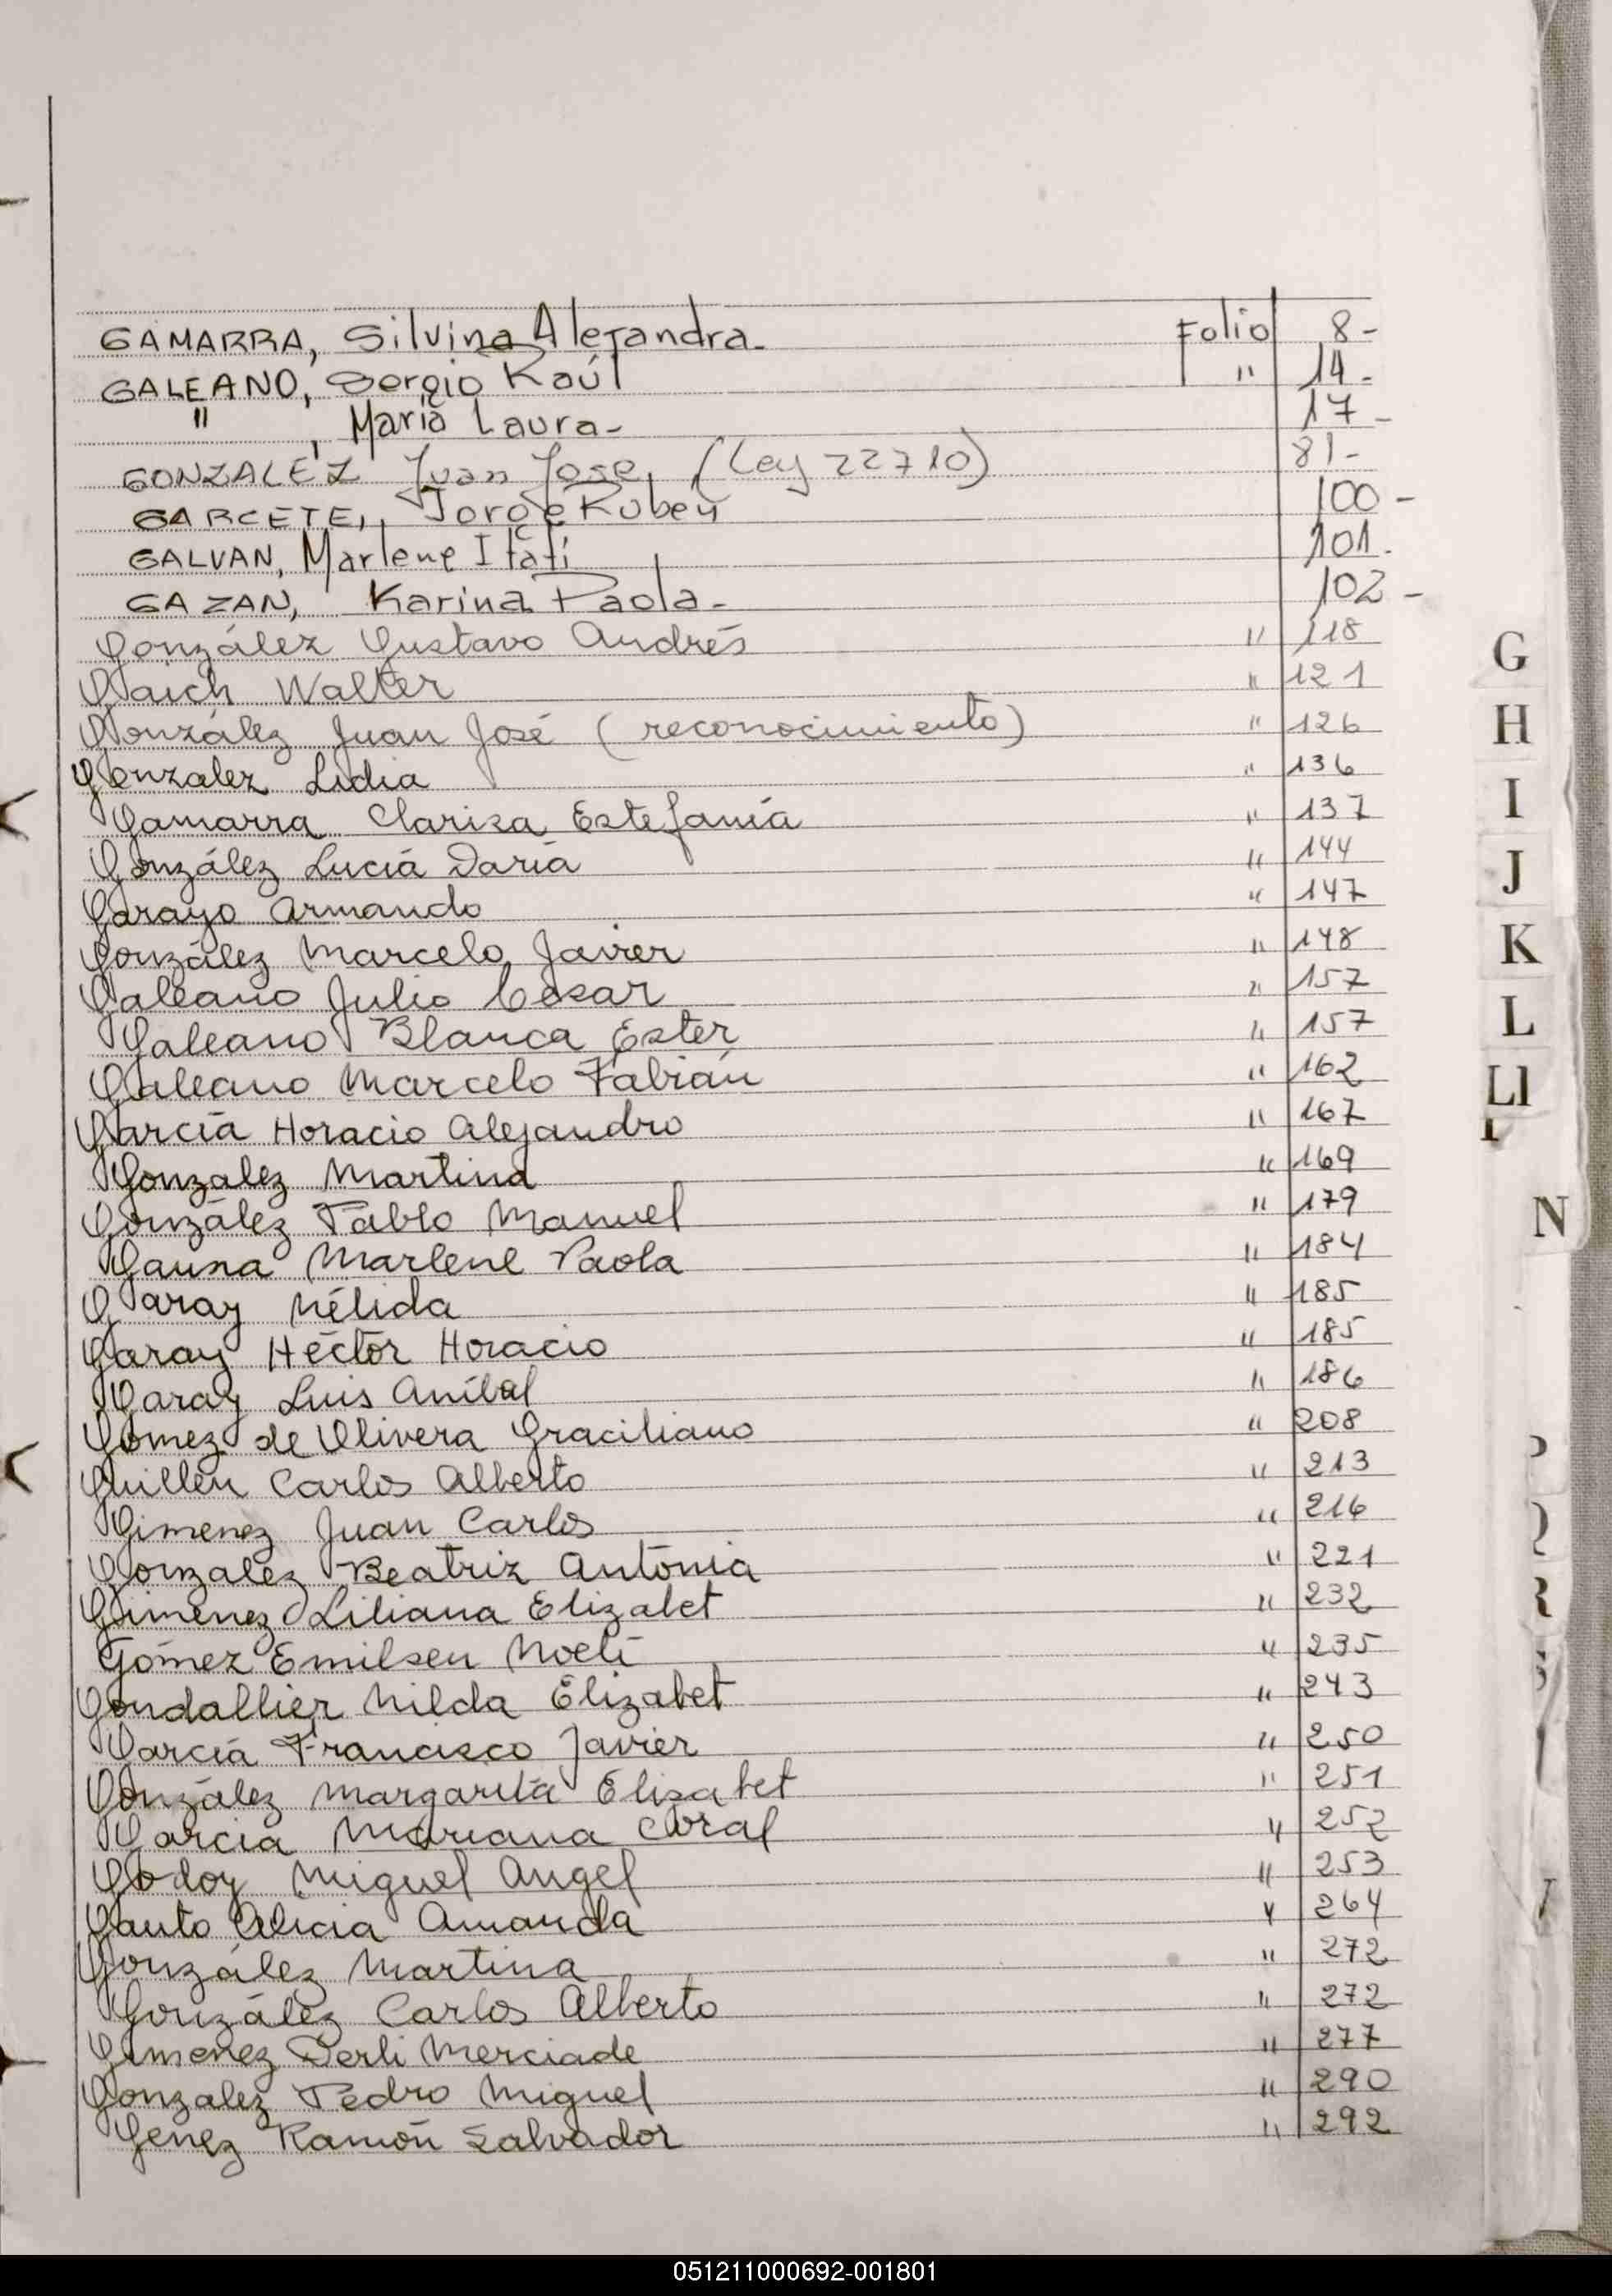 GAMARRA, Silvina Alejandra - Folio 8 -
GALEANO, Sergio Raúl " 14 -
" , María Laura - 17 -
GONZALEZ Juan Jose, (Ley 22710) 81 -
GARCETE, Jorge Ruben 100 -
GALVAN, Marlene Itatí 101 -
GAZAN, Karina Paola - 102 -
González Gustavo Andrés " 118
Garch Walter " 121
González Juan José (reconocimiento) " 126
Gonzalez Lidia " 136
Gamarra Clarisa Estefanía " 137
González Lucía Daria " 144
Garayo Armando " 147
González Marcelo Javier " 148
Galeano Julio Cesar " 157
Galeano Blanca Ester " 157
Galeano Marcelo Fabián " 162
García Horacio Alejandro " 167
Gonzalez Martina " 169
González Pablo Manuel " 179
Gauna Marlene Paola " 184
Garay Nélida " 185
Garay Héctor Horacio " 185
Garay Luis Aníbal " 186
Gomez de Olivera Graciliano " 208
Guillén Carlos Alberto " 213
Gimenez Juan Carlos " 216
Gonzalez Beatriz Antonia " 221
Gimenez Liliana Elizabet " 232
Gómez Emilsen Noelí " 235
Gondallier Nilda Elizabet " 243
García Francisco Javier " 250
González Margarita Elisabet " 251
Garcia Mariana Coral " 252
Godoy Miguel Angel " 253
Gauto Alicia Amanda " 264
González Martina " 272
González Carlos Alberto " 272
Gimenez Derli Merciade " 277
Gonzalez Pedro Miguel " 290
Genez Ramón Salvador " 292
G
H
I
J
K
L
Ll
N
051211000692-001801